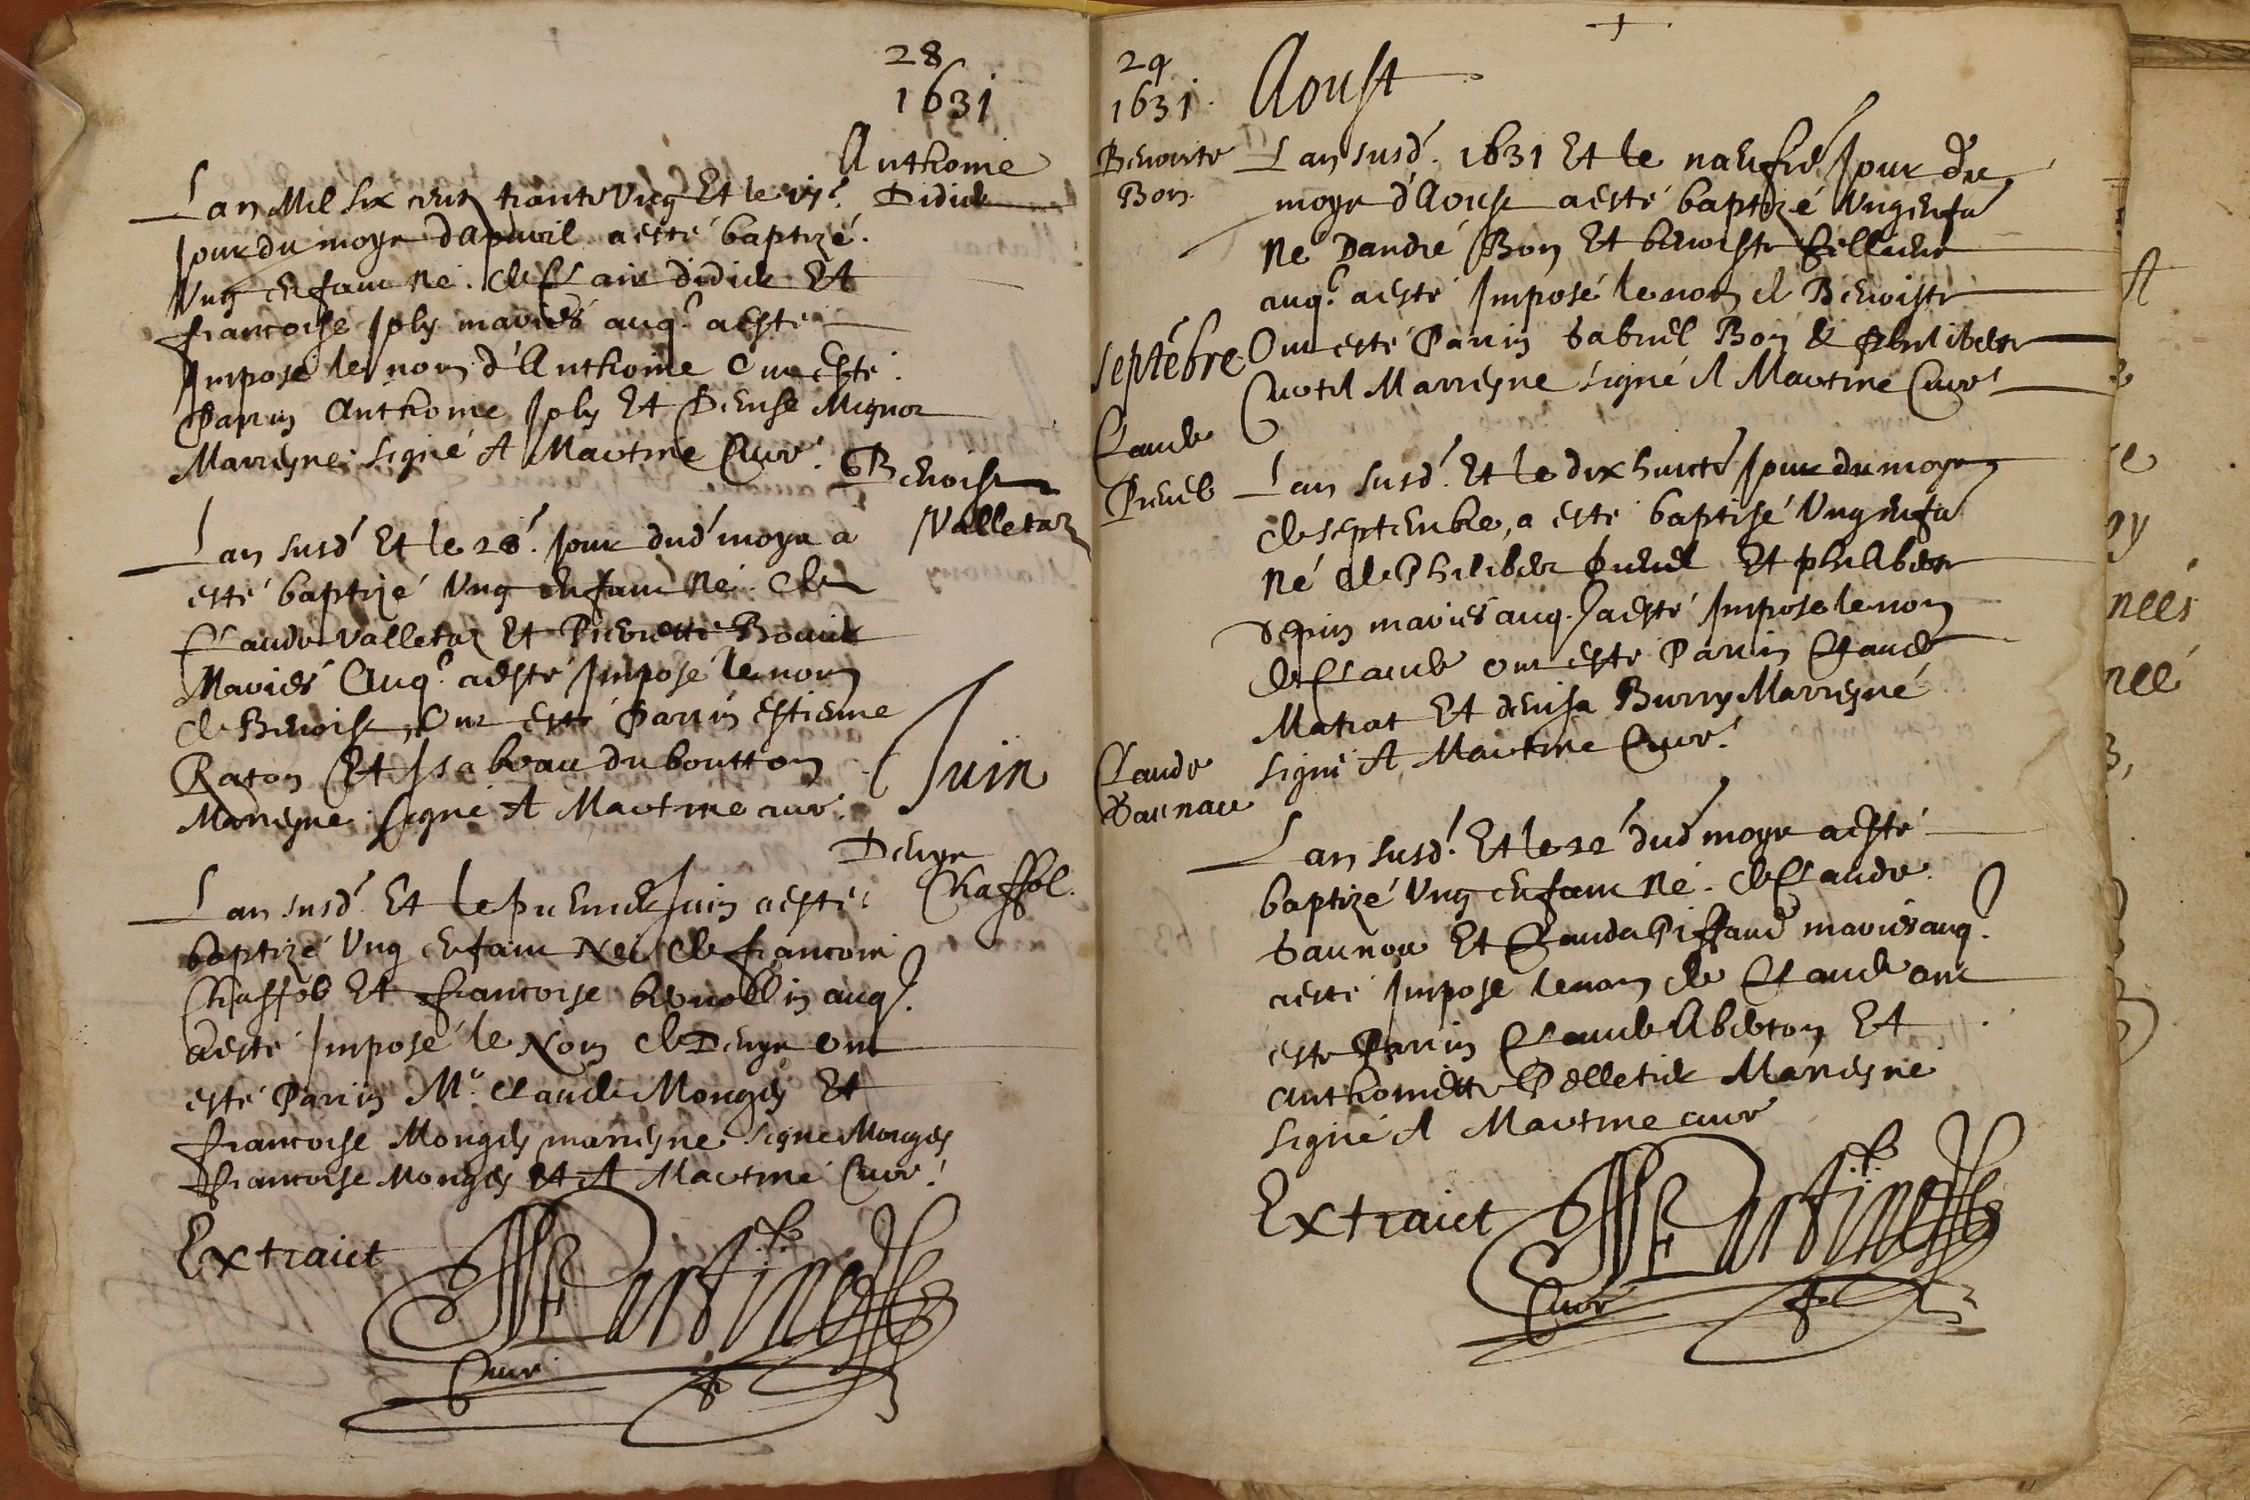 28
1631
Anthoine
Didier
Lan Mil six cens trante Ung Et le
Jour du moys dapvril a esté baptizé.
Ung enfant né. de Clair didier Et
francoise Joly mariés auq.l a esté
Imposé le nom d'Anthoine Ont esté
Parrin Anthoine Joly Et Denise Mignot
Marreyne signé A Martine Curé.
Benoist
Valletaz
Lan susd. Et le 28e. Jour dud. moys a
esté baptizé Ung enfant Né. de
Claude valletaz Et Pierrette
Mariés Auq.l a esté Imposé le nom
de Benoist, Ont esté Parrin estienne
Raton Et Isabeau du boutton
Marreyne signé A Martine curé.
Juin
Denys
Chaffol.
Lan susd. Et le premier Juin a esté
baptizé Ung enfant Né de francois
Chaffol Et francoise auq.l
a esté Imposé le Nom de Denys Ont
esté Parrin Mr. Claude Monges Et
francoise Monges marreyne signe Monges
francoise Monges Et A Martine Curé.
Extraict Martine
Curé
29
1631.
Aoust
Benoite
Bon
Lan susd. 1631 Et le Jour du
moys d'Aoust a esté baptizé Ung enfā
Né Dandré Bon Et benoiste
auq.l a esté Imposé le nom de Benoiste
Ont esté Parrin Gabriel Bon & Philiberte
Marreyne signé A Martine Curé
septēbre
Claude
Lan susd. Et le dix huicte Jour du moys
de septembre, a esté baptisé Ung enfā
Né de Philiber Et philiberte
mariés auq.l a esté Imposé le nom
de Claude ont esté Parrin Claude
Matrat Et denisa Burry Marreyne
signé A Martine Curé.
Claude
Lan susd. Et le 22 dud moys a esté
baptizé Ung enfant Né. de Claude
Et Clauda Piffaud mariés auq.l
a esté Imposé le nom de Claude ont
esté Parrin Claude Et
anthoinette Pelletier Marreyne
signé A Martine curé
Extraict Martine
Curé